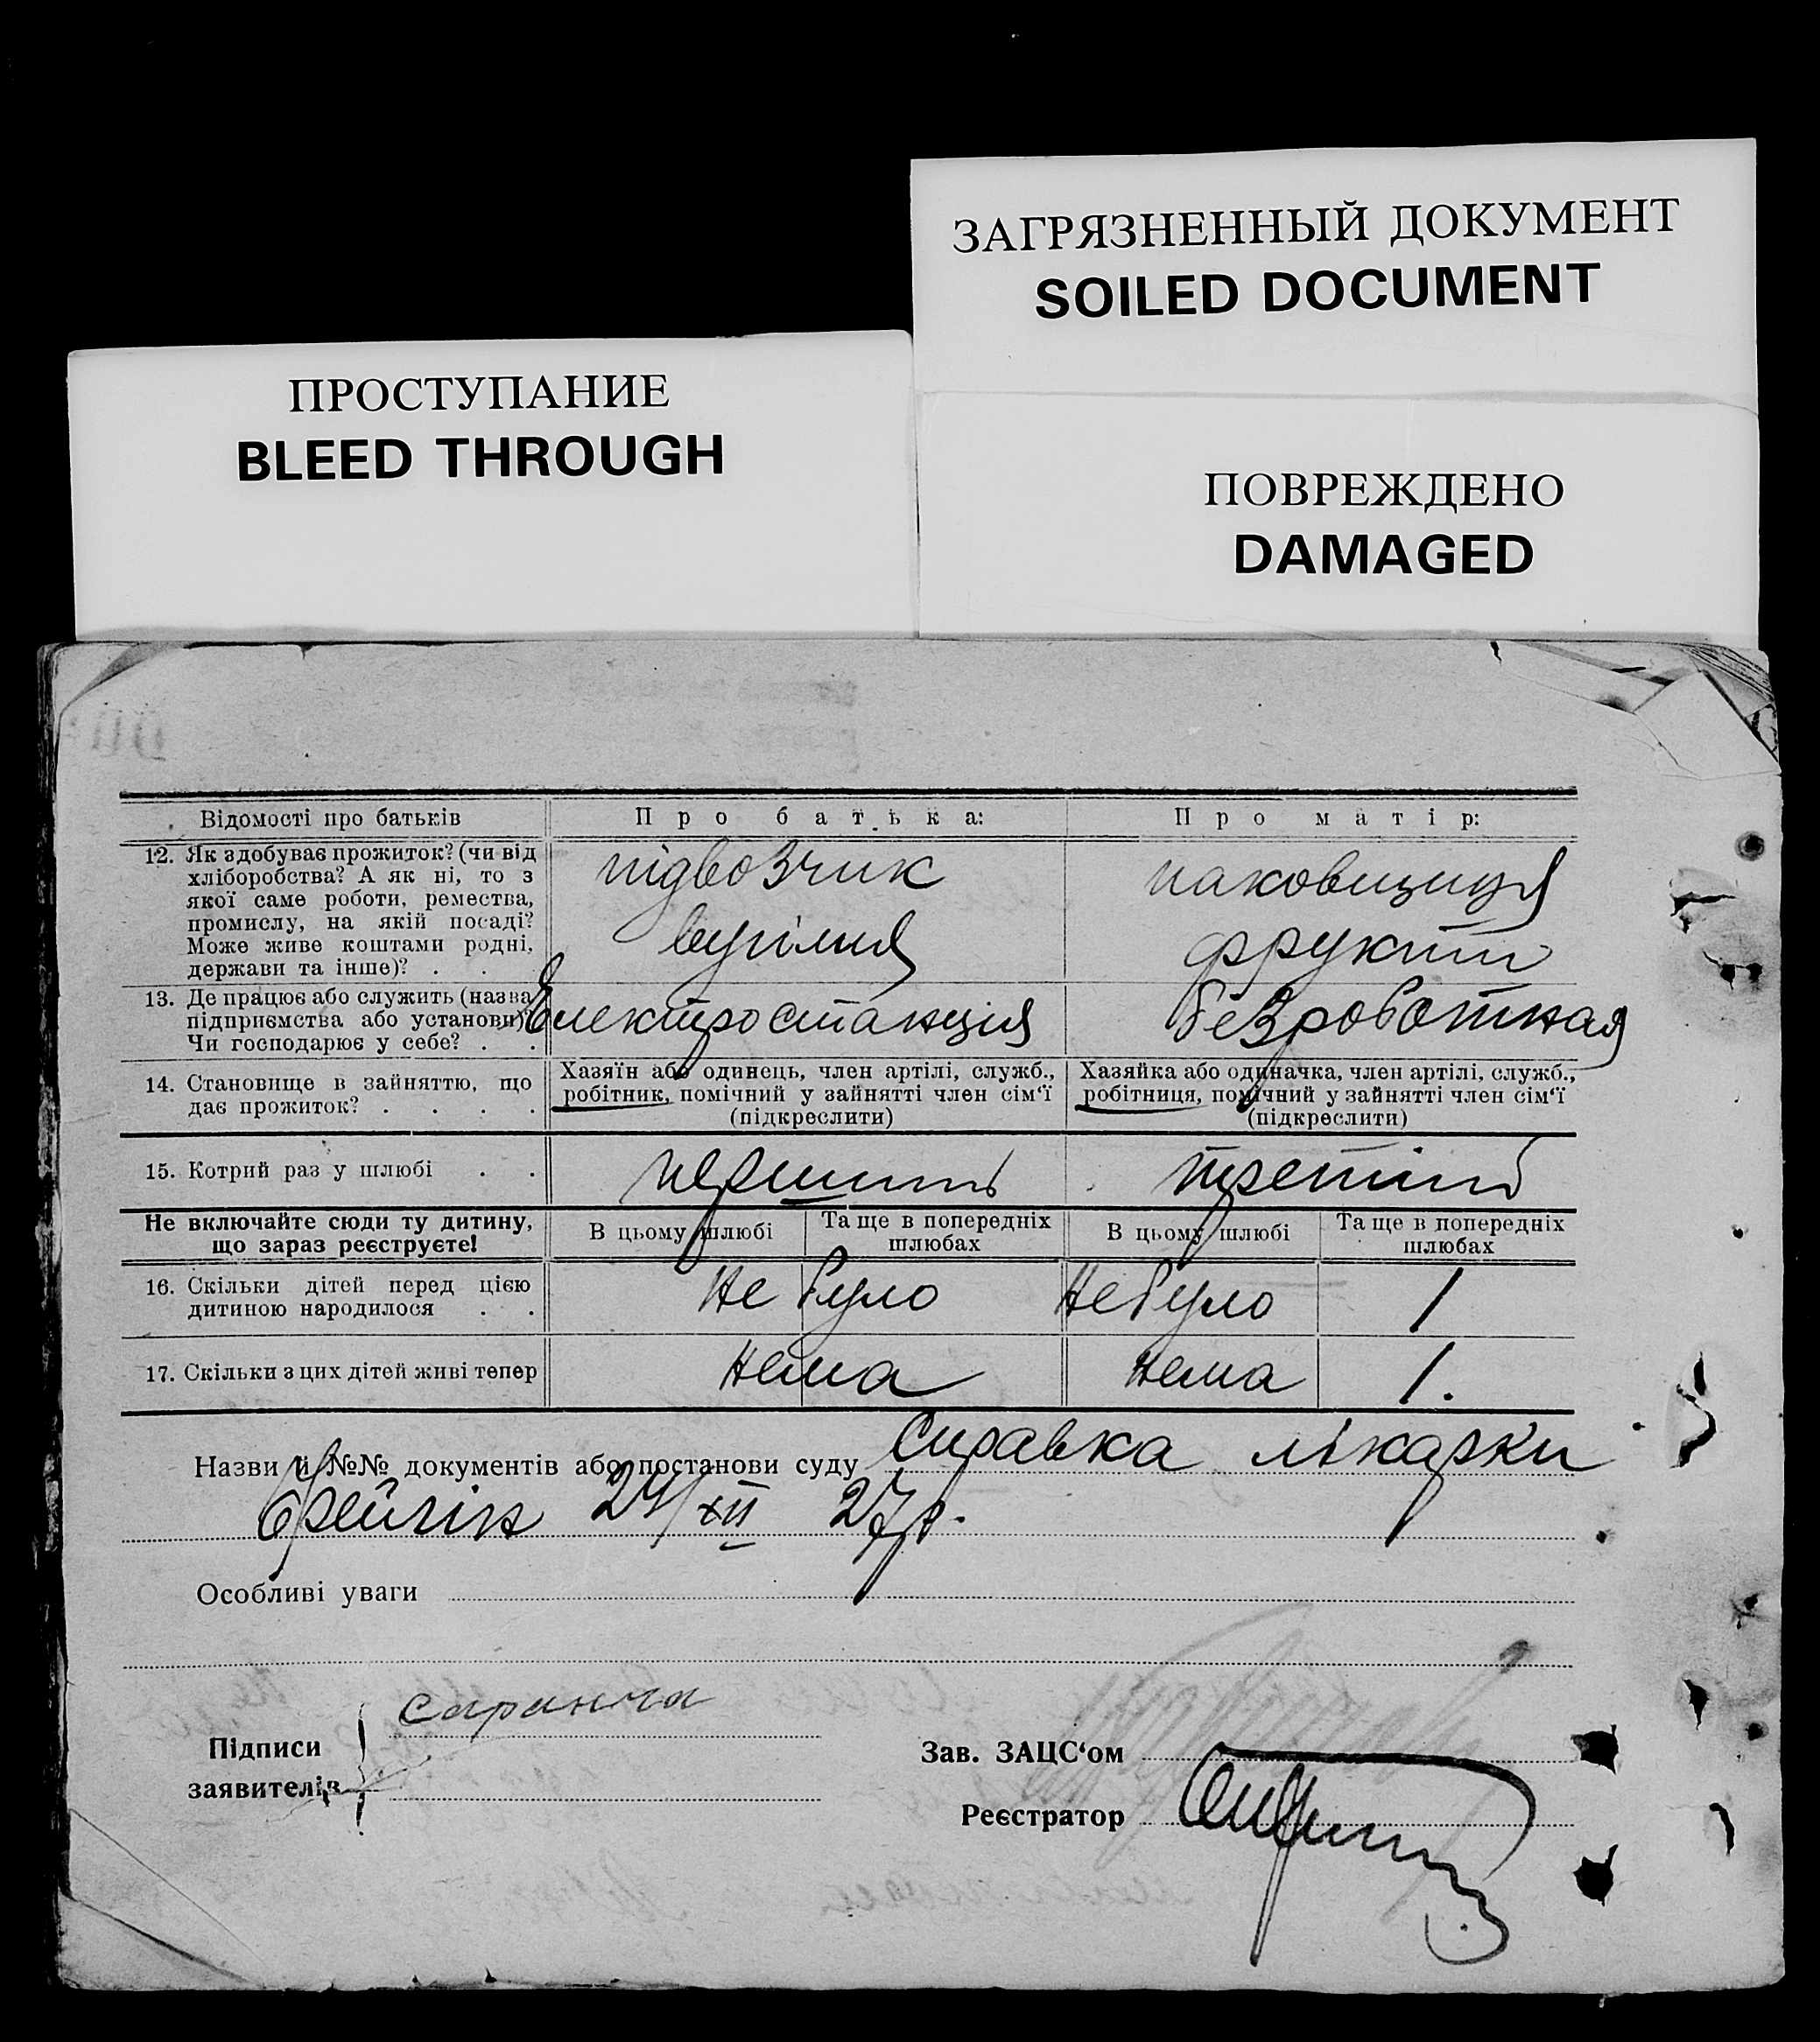 ЗАГРЯЗНЕННЫЙ ДОКУМЕНТ
SOILED DOCUMENT
ПРОСТУПАНИЕ
BLEED THROUGH
ПОВРЕЖДЕНО
DAMAGED
Відомості про батьків
Про батька:
Про матір:
12. Як здобуває прожиток? (чи від
хліборобства? А як ні, то з
якої саме роботи, ремества,
промислу, на якій посаді?
Може живе коштами родні,
держави та інше)? . . .
підвозчик
вугілля
паковщиця
фрукти
13. Де працює або служить (назва
підприємства або установи)?
Чи господарює у себе? . .
Електростанція
безроботная
14. Становище в зайняттю, що
дає прожиток? . . . .
Хазяїн або одинець, член артілі, служб.,
робітник, помічний у зайнятті член сім‘ї
(підкреслити)
Хазяйка або одиначка, член артілі, служб.,
робітниця, помічний у зайнятті член сім‘ї
(підкреслити)
15. Котрий раз у шлюбі . .
перший
третій
Не включайте сюди ту дитину,
що зараз реєструєте!
В цьому шлюбі
Та ще в попередніх
шлюбах
В цьому шлюбі
Та ще в попередніх
шлюбах
16. Скільки дітей перед цією
дитиною народилося . .
Не було
Не було
1
17. Скільки з цих дітей живі тепер
нема
нема
1.
Назви й №№ документів або постанови суду Справка лікарки
24/XII 27р.
Особливі уваги
Саранча
Підписи
заявителів
Зав. ЗАЦС‘ом
Реєстратор